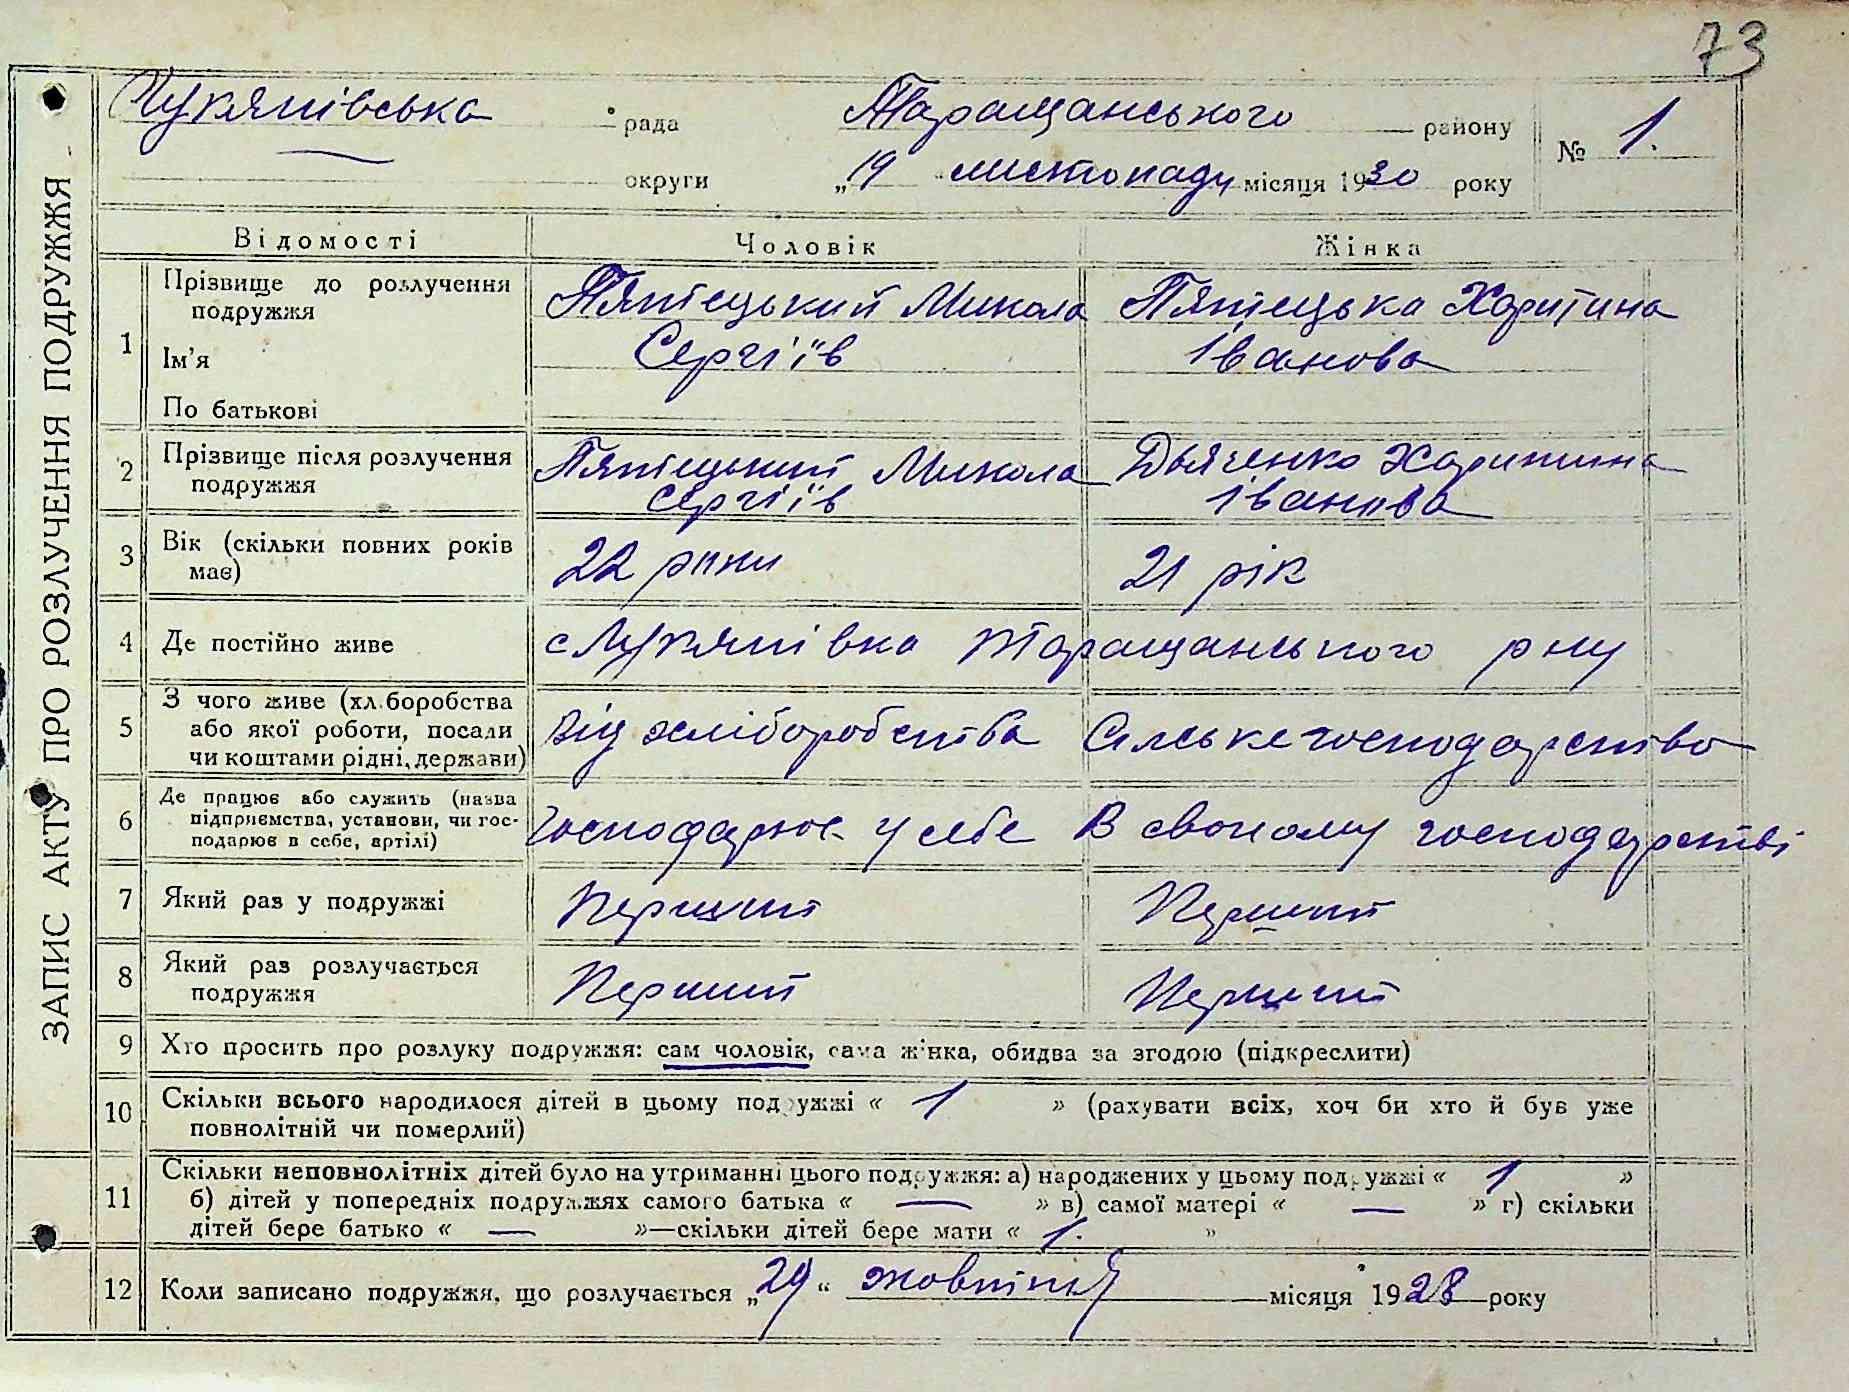 73
ЗАПИС АКТУ ПРО РОЗЛУЧЕННЯ ПОДРУЖЖЯ
Лукянівська рада Таращанського району № 1.
округи „19 листопаду місяця 1930 року
Відомості Чоловік Жінка
1 Прізвище до розлучення подружжя Пятецький Микола Пятецька Харитина
Ім'я Сергіїв Іванова
По батькові
2 Прізвище після розлучення Пятецький Микола Дьяченко Харитина
подружжя Сергіїв Іванова
3 Вік (скільки повних років має) 22 роки 21 рік
4 Де постійно живе с Лукянівка Таращанського рну
5 З чого живе (хл.боробства
або якої роботи, посади Від хліборобства Сільське господарство
чи коштами рідні, держави)
6 Де працює або служить (назва
підприємства, установи, чи гос- господарює у себе В своєму господарстві
подарює в себе, артілі)
7 Який раз у подружжі Перший Перший
8 Який раз розлучається
подружжя Перший Перший
9 Хто просить про розлуку подружжя: сам чоловік, сама жінка, обидва за згодою (підкреслити)
10 Скільки всього народилося дітей в цьому подружжі « 1 » (рахувати всіх, хоч би хто й був уже
повнолітній чи померлий)
11 Скільки неповнолітніх дітей було на утриманні цього подружжя: а) народжених у цьому подружжі « 1 »
б) дітей у попередніх подружжях самого батька « — » в) самої матері « — » г) скільки
дітей бере батько « — »—скільки дітей бере мати « 1. »
12 Коли записано подружжя, що розлучається „29“ жовтня місяця 1928 року